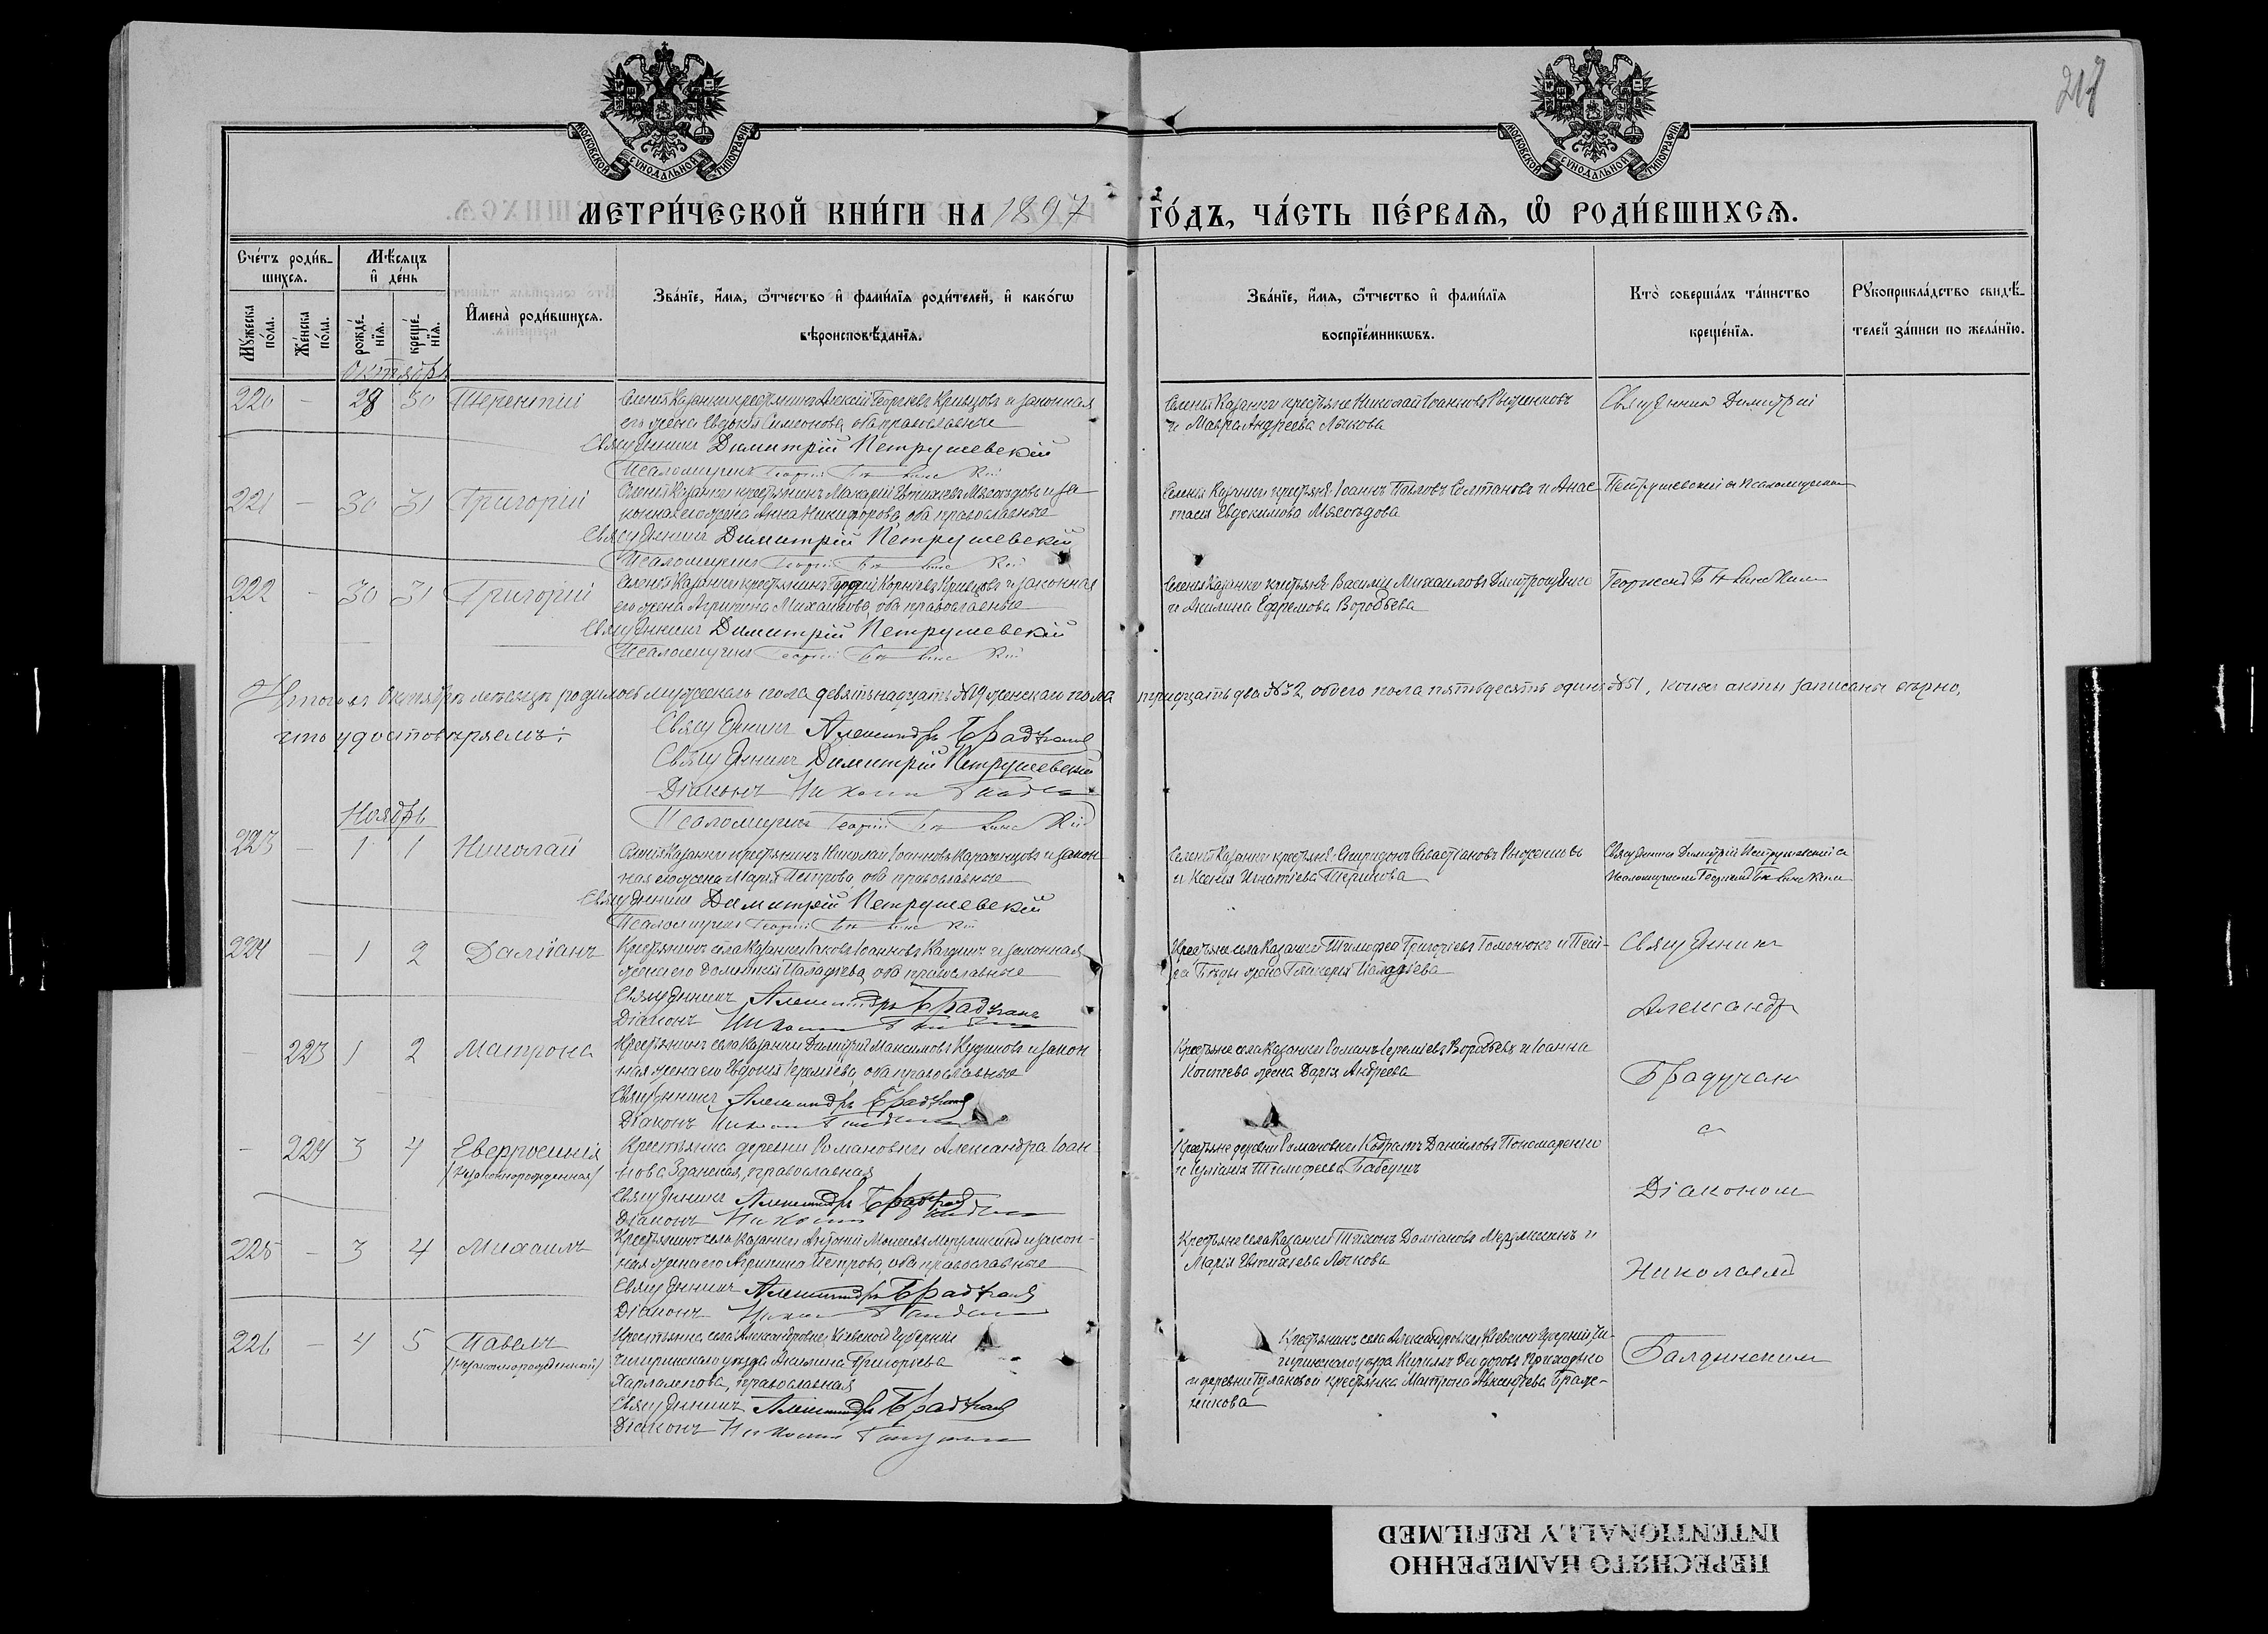 217
МОСКОВСКОЙ СѴНОДАЛЬНОЙ ТИПОГРАФІИ
МОСКОВСКОЙ СѴНОДАЛЬНОЙ ТИПОГРАФІИ
МЕТРИ́ЧЕСКОЙ КНИ́ГИ НА 1897 ГО́ДЪ, ЧА́СТЬ ПЕ́РВАѦ, Ѡ РОДИ́ВШИХСѦ.
Сче́тъ роди́в-
шихсѧ.
Мꙋ́жеска по́ла.
Же́нска по́ла.
Мѣ́сѧцъ
и҆ де́нь
рожде́-
нїѧ.
креще́-
нїѧ.
И҆мена̀ роди́вшихсѧ.
Зва́нїе, и҆́мѧ, ѻ҆́тчество и҆ фами́лїѧ роди́телей, и҆ како́гѡ
вѣроисповѣ́данїѧ.
Зва́нїе, и҆́мѧ, ѻ҆́тчество и҆ фами́лїѧ
воспрїе́мникѡвъ.
Кто̀ соверша́лъ та́инство
креще́нїѧ.
Рꙋкоприкла́дство свидѣ́-
телей за́писи по жела́нїю.
Октябрь
220 - 28 30 Терентій
Селенія Казанки крестьянинъ Алексій Георгіевъ Кравцовъ и законная
его жена Евдокія Симеонова, оба православные
Священникъ Димитрій Петрушевскій
Псаломщикъ Георгій
Селенія Казанки крестьяне Николай Іоанновъ
и Мавра Андреева Лыкова
Священник Димитрій
221 - 30 31 Григорій
Селенія Казанки крестьянинъ Макарій Евтихіевъ Мясоѣдовъ и за-
конная его жена Анна Никифорова, оба православные
Священникъ Димитрій Петрушевскій
Псаломщикъ Георгій
Селенія Казанки крестьяне Іоаннъ Павловъ Солтановъ и Анас-
тасія Евдокимова Мясоѣдова
Петрушевскій съ псаломщикомъ
222 - 30 31 Григорій
Селенія Казанки крестьянинъ Георгій Корніевъ Кравцовъ и законная
его жена Агрипина Михаилова, оба православные
Священникъ Димитрій Петрушевскій
Псаломщикъ Георгій
Селенія Казанки крестьяне Василій Михаиловъ Дмитрощенко
и Акилина Ефремова Воробьева
Георгіемъ
Итого въ Октябрѣ мѣсяцѣ родилось мужескаго пола девятьнадцать №19 женскаго пола тридцать два №32, обоего пола пятьдесятъ одинъ №51, коихъ акты записаны вѣрно,
что удостовѣряемъ:
Священникъ Александръ Брадучанъ
Священникъ Димитрій Петрушевскій
Діаконъ Николай
Псаломщикъ Георгій
Ноябрь
223 - 1 1 Николай
Селенія Казанки крестьянинъ Николай Іоанновъ Карагенцовъ и закон-
ная его жена Марія Петрова, оба православные
Священникъ Димитрій Петрушевскій
Псаломщикъ Георгій
Селенія Казанки крестьяне: Спиридонъ Савастіановъ
и Ксенія Игнатіева Терикова
Священникъ Димитрій Петрушевскій съ
Псаломщикомъ Георгіемъ
224 - 1 2 Даміанъ
Крестьянинъ села Казанки Іаковъ Іоанновъ и законная
жена его Домникія Паладіева, оба православные
Священникъ Александръ Брадучанъ
Діаконъ Николай
Крестьяне села Казанки Тимофей Григоріевъ Гомонюкъ и Пет-
ра Бѣды жена Гликерія Паладіева
Священникъ
Александръ
- 223 1 2 Матрона
Крестьянинъ села Казанки Димитрій Максимовъ и закон-
ная жена его Евдокія Іереміева, оба православные
Священникъ Александръ Брадучанъ
Діаконъ Николай
Крестьяне села Казанки Романъ Іереміевъ Воробьевъ и Іоанна
Коптева жена Дарія Андреева
Брадучанъ
съ
- 224 3 4 Евфросинія
(незаконнорожденная)
Крестьянка деревни Романовки Александра Іоан-
нова православная
Священникъ Александръ Брадучанъ
Діаконъ Николай
Крестьяне деревни Романовки Кодратъ Даниловъ Пономаренко
и Іуліанія Тимофеева
Діакономъ
225 - 3 4 Михаилъ
Крестьянинъ села Казанки Антоній Моисеевъ и закон-
ная жена его Агрипина Петрова, оба православные
Священникъ Александръ Брадучанъ
Діаконъ Николай
Крестьяне села Казанки Тихонъ Даміановъ и
Марія Евтихіева Лыкова
Николаемъ
226 - 4 5 Павелъ
(незаконнорожденный)
Крестьянка села Александровки Кіевской Губерніи
Чигиринскаго уѣзда Акилина Григорьева
Харламова, православная
Священникъ Александръ Брадучанъ
Діаконъ Николай
Крестьянинъ села Александровки, Кіевской Губерніи, Чи-
гиринскаго уѣзда Кириллъ Феодоровъ Приходько
и деревни крестьянка Матрона Браж-
никова
Балдинскимъ
ПЕРЕСНЯТО НАМЕРЕННО
INTENTIONALLY REFILMED